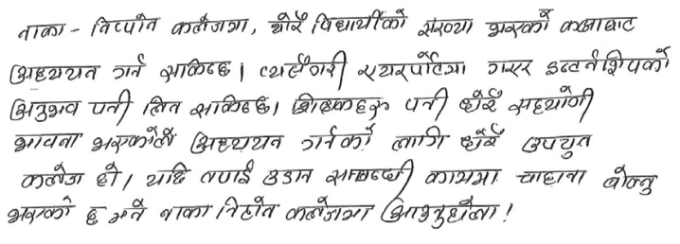 नाका - निप्पोन कलेजमा, थोरै विद्यार्थीको संख्या भएको कक्षाबाट
अध्ययन गर्न सकिन्छ। त्यसैगरी एयरपोर्टमा गएर इन्टर्नशिपको
अनुभव पनी लिन सकिन्छ। शिक्षकहरु पनी धेरै सहयोगी
भावना भएकोले अध्ययन गर्नको लागि धेरै उपयुत
कलेज हो। यदि तपाई उडान सम्बन्धी काममा चाहाना बोक्नु
भएको छ भने नाका निहोन कलेजमा आउनुहोला!